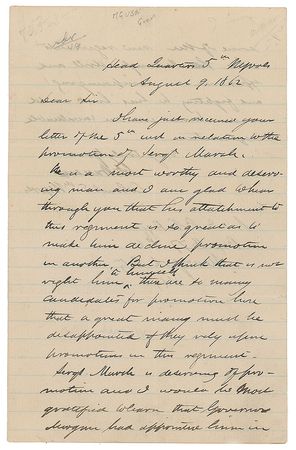 MGUSA
Head Quarters 5th N.Y. Vols
August 9. 1862
Dear Sir
I have just received your
letter of the 5th inst in relation to the
promotion of Sergt Marsh.
He is a most worthy and deserv-
ing man and I am glad to hear
through you that his attachment to
this regiment is so great as to
make him decline promotion
in another. But I think that is not
right
to himself
him, there are so many
candidates for promotion here
that a great many must be
disappointed if they rely upon
promotions in this regiment.
Sergt Marsh is deserving of pro-
motion and I would be most
gratified to learn that Governor
Morgan had appointed him in